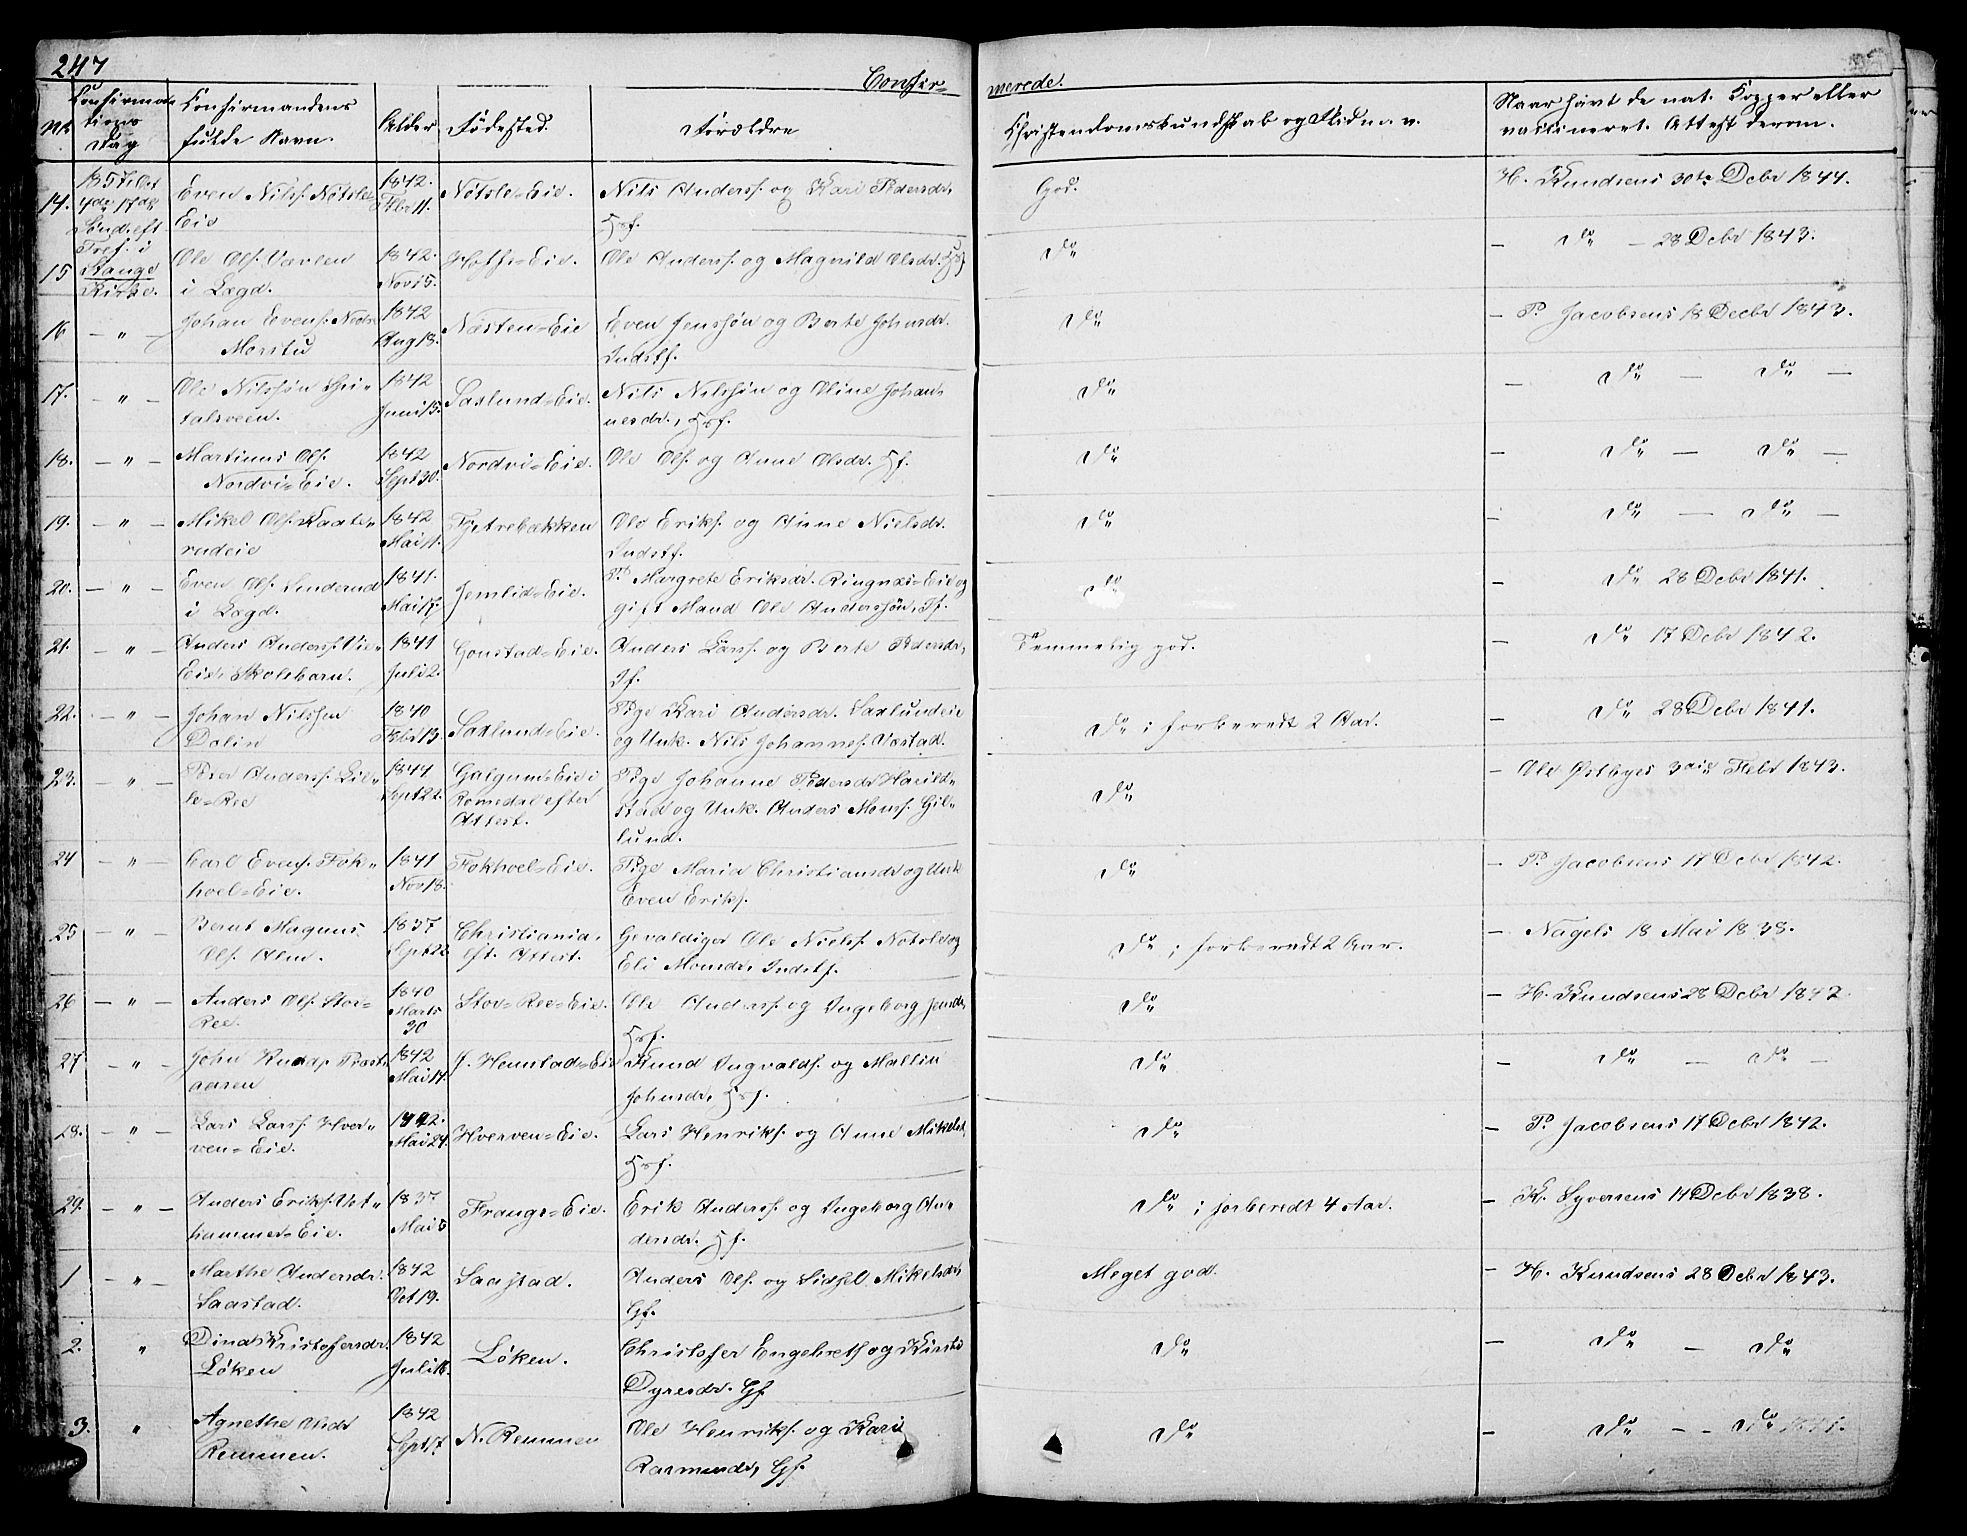 247
Confir-
merede.
Nr.
Confirma-
tions
Dag
Confirmandens
fulde Navn.
Alder
Fødested.
Forældre
Christendomskundskab og Flid m. v.
Naar havt de nat. Kopper eller
vaccineret. Attest derom.
14.
Sønd. eft
Tref. i
Stange
Kirke.
Even Nilss. Nøtsle-
Eie
1842.
Febr 11.
Nøtsle-Eie.
Nils Anderss. og Kari Pedersdr,
Hrf.
God.
H. Knudsens 30te Debr 1844.
15
Ole Ols.
i Lægd.
1842.
Nov 15.
Ole Anderss. og Magnild Olsdr. Hrf
Do
- Do - 28 Debr 1843.
16
- " -
Johan Evens. Nedre
Morstu
1842
Aug 18.
Næsten-Eie
Even Jenssøn og Berte Johnsdr.
Indstf.
Do
- P. Jacobsens 18 Decbr 1843.
17.
- " -
Ole Nilssøn
talsveen.
1842
Juni 15.
Saxlund-Eie.
Nils Nilssøn og Oline Johan-
nesdr., Hrf.
Do
- Do - Do -
18.
- " -
Martinus Ols.
Nordvi-Eie.
1842
Sept 30.
Nordvi-Eie.
Ole Ols. og Anne Olsdr. Hf.
Do
- Do - Do -
19.
- " -
Mikel Ols. Kaate-
rudeie
1842
Mai 11.
Tjetrebækken
Ole Eriks. og Anne Nielsdr.
Indstf.
Do
- Do - Do -
20.
- " -
Even Ols. Linderud
i Lægd.
1841.
Mai 17.
Jemlid-Eie.
P. Margrete Eriksdr. Ringnæs-Eie og
gift Mand Ole Anderssøn, If.
Do
- Do 28 Debr 1841.
21.
- " -
Anders Anderss. Vie-
Eie, Skolebarn.
1841
Juli 2.
Gonstad-Eie.
Anders Larss. og Berte Pedersdr,
If.
Temmelig god.
- Do 17 Debr 1842.
22.
- " -
Johan Nilssen
Dalin
1840
Febr 13.
Saxlund-Eie.
Pige Kari Andersdr. Saxlundeie
og Unk. Nils Johannes. Væstad.
Do ; forberedt 2 Aar.
- Do 28 Debr 1841.
23.
"
Peter Anderss. Lil-
le-Ree
1841
Sept 22.
Galgum-Eie i
Romedal efter
Attest.
Pige Johanne Pedersdr Harild-
stad og Unk. Anders Monss. Gil-
lund.
Do
- Ole Østbyes 3die Febr 1843.
24
- " -
Carl Evens. Fok-
hoel-Eie.
1841
Nov 18.
Fokhoel-Eie.
Pige Maria Christiansdr og Unk
Even Eriks.
Do
- P. Jacobsens 17 Debr 1842.
25
- " -
Bernt Magnus
Ols. Alm.
1837
Sept 22
Christiania,
eft. Attest.
Gevaldiger Ole Nielss. Nøtsle og
Eli Monsdr, Indstf.
Do ; forberedt 2 Aar.
- Nagels 18 Mai 1838.
26
- " -
Anders Ols. Stor-
Ree.
1840
Marts
30
Stor-Ree-Eie.
Ole Anderss. og Ingeborg Jensdr,
Hrf.
Do
- H. Knudsens 28 Debr 1842.
27
- " -
John Knuds. Præst-
aasen
1842
Mai 14.
J. Hemstad-Eie
Knud Ingvalds. og Mallin
Johnsdr, Hrf.
Do
- Do - Do -
28.
- " -
Lars Larss. Hver-
ven-Eie.
1842.
Mai 24.
Hverven-Eie.
Lars Henriks. og Anne Mikelsd,
Hrf.
Do
- P. Jacobsens 17 Debr 1842.
29.
- " -
Anders Eriks. Vet-
hammer-Eie.
1837
Mai 5
Frangs-Eie.
Erik Anderss. og Ingeborg An-
dersdr. Hf.
Do ; forberedt 4 Aar.
- K. Syversens 14 Debr 1838.
1
- " -
Marthe Andersdr.
Saastad.
1842
Oct 19.
Saastad.
Anders Ols. og Sidsel Mikelsdr,
Gf.
Meget god.
- H. Knudsens 28 Debr 1843.
2.
"
Dina Kristofersdr.
Løken
1842
Juli
Løken.
Christofer Engebrets og Kirsti
Dyresdr. Gf
Do
- Do - Do
3.
"
Agnethe Olsdr
Remmen.
1842
Sept 17
N. Remmen
Ole Henriks. og Kari
Rasmusdr, Gf.
Do
- Do - - Do